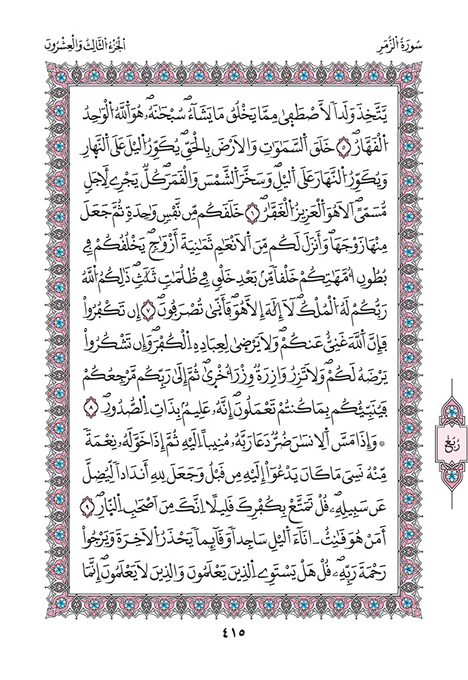 سُورَةُ الزُّمَرِ
الجُزْءُ الثَّالِثُ وَالْعِشْرُونَ
يَّتَّخِذَ وَلَداً لَّاصْطَفىٰ مِمَّا يَخْلُقُ مَا يَشَآءُ سُبْحَٰنَهُۥ هُوَ اَللَّهُ اُلْوَٰحِدُ
اُلْقَهَّارُ ٥ خَلَقَ اَلسَّمَٰوَٰتِ وَالَارْضَ بِالْحَقِّ يُكَوِّرُ اُليْلَ عَلَى اَلنَّهَارِ
وَيُكَوِّرُ اُلنَّهَارَ عَلَى اَليْلِ وَسَخَّرَ اَلشَّمْسَ وَالْقَمَرَ كُلٌّ يَجْرِے لِأَجَلٍ
مُّسَمّىً اَلَا هُوَ اَلْعَزِيزُ اُلْغَفَّٰرُ ٦ خَلَقَكُم مِّن نَّفْسٍ وَٰحِدَةٍ ثُمَّ جَعَلَ
مِنْهَا زَوْجَهَا وَأَنزَلَ لَكُم مِّنَ اَلَانْعَٰمِ ثَمَٰنِيَةَ أَزْوَٰجٍ يَخْلُقُكُمْ فِے
بُطُونِ أُمَّهَٰتِكُمْ خَلْقاً مِّنۢ بَعْدِ خَلْقٍ فِے ظُلُمَٰتٍ ثَلَٰثٍ ذَٰلِكُمُ اُللَّهُ
رَبُّكُمْ لَهُ اُلْمُلْكُ لَآ إِلَٰهَ إِلَّا هُوَ فَأَنّىٰ تُصْرَفُونَ ٧ إِن تَكْفُرُواْ
فَإِنَّ اَللَّهَ غَنِيٌّ عَنكُمْ وَلَا يَرْضىٰ لِعِبَادِهِ اِلْكُفْرَ وَإِن تَشْكُرُواْ
يَرْضَهُ لَكُمْ وَلَا تَزِرُ وَازِرَةٌ وِزْرَ أُخْرىٰ ثُمَّ إِلَىٰ رَبِّكُم مَّرْجِعُكُمْ
فَيُنَبِّئُكُم بِمَا كُنتُمْ تَعْمَلُونَ إِنَّهُۥ عَلِيمٌ بِذَاتِ اِلصُّدُورِ ٨
وَإِذَا مَسَّ اَلِانسَٰنَ ضُرٌّ دَعَا رَبَّهُۥ مُنِيباً اِلَيْهِ ثُمَّ إِذَا خَوَّلَهُۥ نِعْمَةً
مِّنْهُ نَسِيَ مَا كَانَ يَدْعُوٓاْ إِلَيْهِ مِن قَبْلُ وَجَعَلَ لِلهِ أَندَاداً لِّيُضِلَّ
عَن سَبِيلِهِۦ قُلْ تَمَتَّعْ بِكُفْرِكَ قَلِيلاً اِنَّكَ مِنَ اَصْحَٰبِ اِلنَّارِ ٩
أَمَنْ هُوَ قَٰنِتٌ اٰنَآءَ اَليْلِ سَاجِداً وَقَآئِماً يَحْذَرُ اُلَاخِرَةَ وَيَرْجُواْ
رَحْمَةَ رَبِّهِۦ قُلْ هَلْ يَسْتَوِے اِلذِينَ يَعْلَمُونَ وَالذِينَ لَا يَعْلَمُونَ إِنَّمَا
رُبُعْ
٤١٥